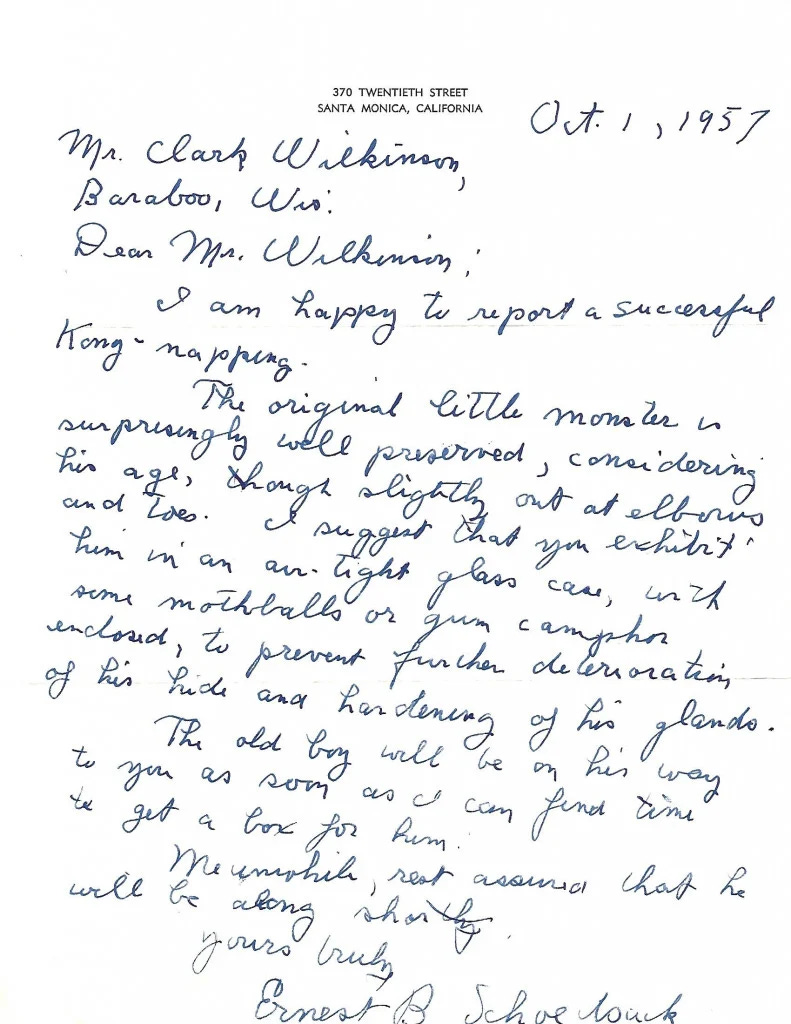 370 TWENTIETH STREET
SANTA MONICA, CALIFORNIA
Oct. 1, 1957
Mr. Clark Wilkinson,
Baraboo, Wis.
Dear Mr. Wilkinson;
I am happy to report a successful
Kong-napping.
The original little monster is
surprisingly well preserved, considering
his age, though slightly out at elbows
and toes. I suggest that you exhibit
him in an air-tight glass case, with
some mothballs or gum camphor
enclosed, to prevent further deterioration
of his hide and hardening of his glands.
The old boy will be on his way
to you as soon as I can find time
to get a box for him.
Meanwhile, rest assured that he
will be along shortly.
Yours truly
Ernest B Schoedsack